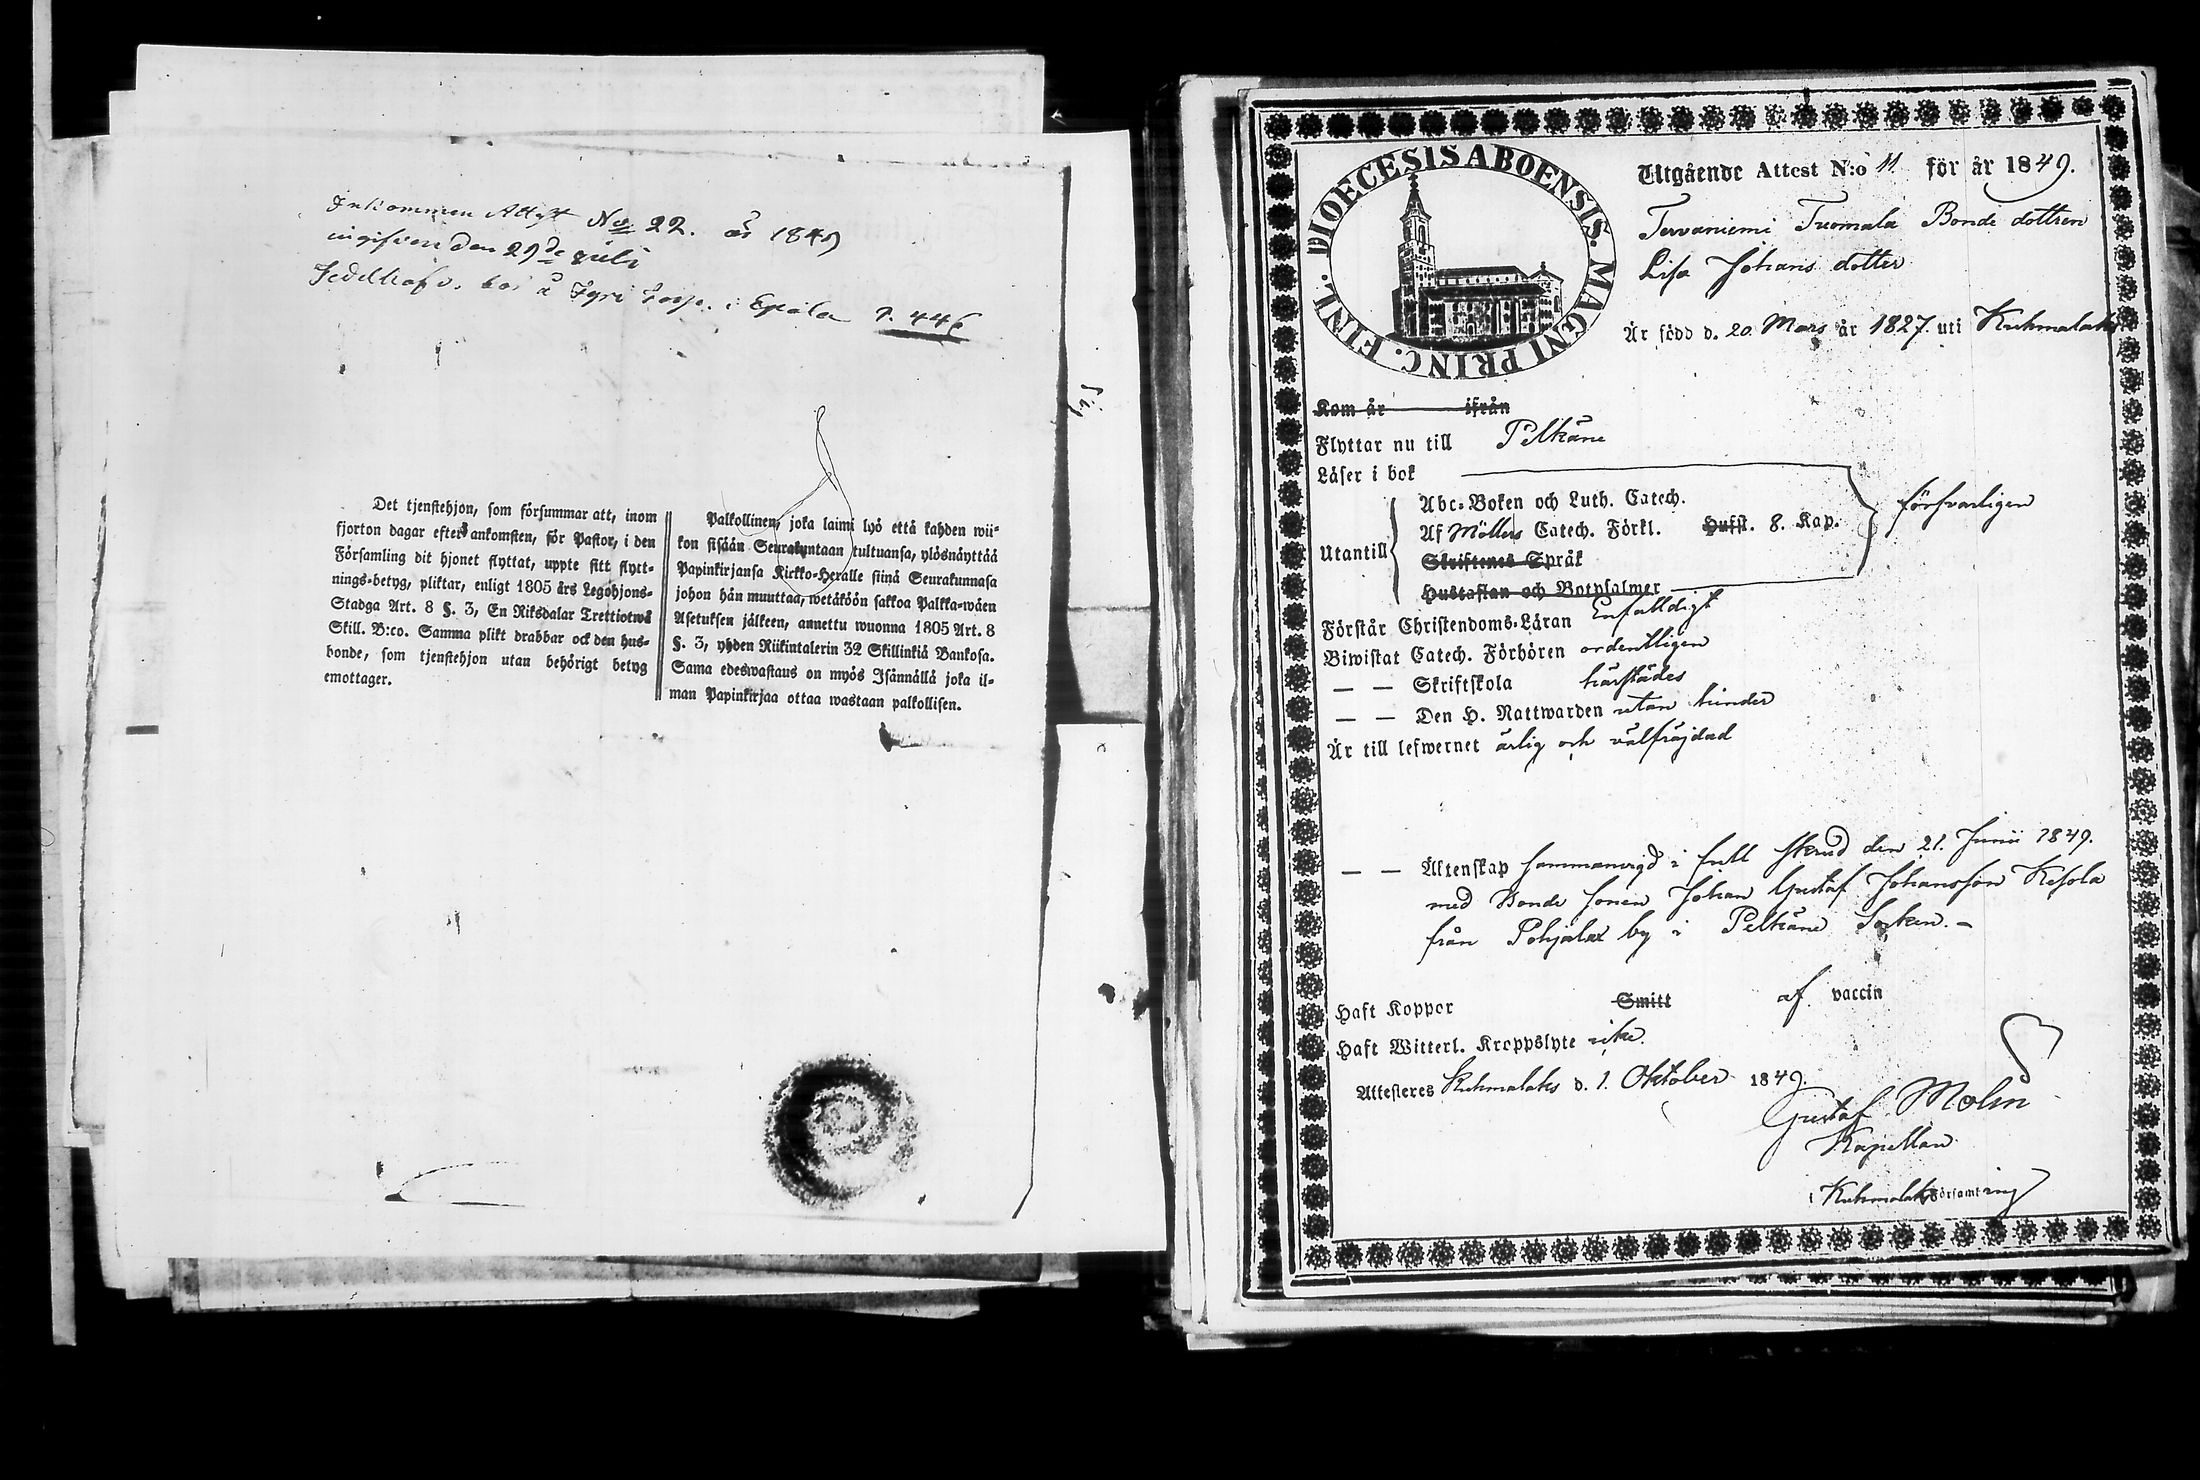 Inkommen Attest No 22. år 1849
ingifven den 29de Juli
i Epäla p. 446
Det tjenstehjon, som försummar att, inom
fjorton dagar efter ankomsten, för Pastor, i den
Församling dit hjonet flyttat, uppte sitt flytt-
nings-betyg, pliktar, enligt 1805 års Legohjons-
Stadga Art. 8 §. 3, En Riksdalar Trettiotwå
Skill. B:co. Samma plikt drabbar ock den hus-
bonde, som tjenstehjon utan behörigt betyg
emottager.
Palkollinen, joka laimi lyö että kahden wii-
kon sisään Seurakuntaan tultuansa, ylösnäyttää
Papinkirjansa Kirkko-Heralle siinä Seurakunnasa
johon hän muuttaa, wetäköön sakkoa Palkka-wäen
Asetuksen jälkeen, annettu wuonna 1805 Art. 8
§. 3, yhden Riikintalerin 32 Skillinkiä Bankosa.
Sama edeswastaus on myös Isännällä joka il-
man Papinkirjaa ottaa wastaan palkollisen.
DIOECESIS ABOENSIS. MAGNI PRINC. FINL.
Utgående Attest N:o 11 för år 1849.
Tervaniemi Tuomala Bonde dottren
Lisa Johans dotter
Är född d. 20 Mars år 1827. uti Kuhmalaks
Kom år ifrån
Flyttar nu till Pelkäne
Läser i bok
Utantill
Abc-Boken och Luth. Catech.
Af Möllers Catech. Förkl. Hufst. 8. Kap.
Skriftenes Språk
Hustaflan och Botpsalmer
försvarligen
Förstår Christendoms-Läran Enfalldigt
Biwistat Catech. Förhören ordentligen
— — Skriftskola härstädes
— — Den H. Nattwarden utan hinder
Är till lefwernet ärlig och välfräjdad
— — Äktenskap sammanvigd i full skrud den 21. Junii 1849.
med Bonde sonen Johan Gustaf Johansson Kesola
från Pohjalax by i Pelkäne Socken. –
Haft Koppor Smitt af vaccin
Haft Witterl. Kroppslyte icke.
Attesteres Kuhmalaks d. 1. Oktober 1849.
Gustaf Molin
Kapellan
i Kuhmalaks Församling